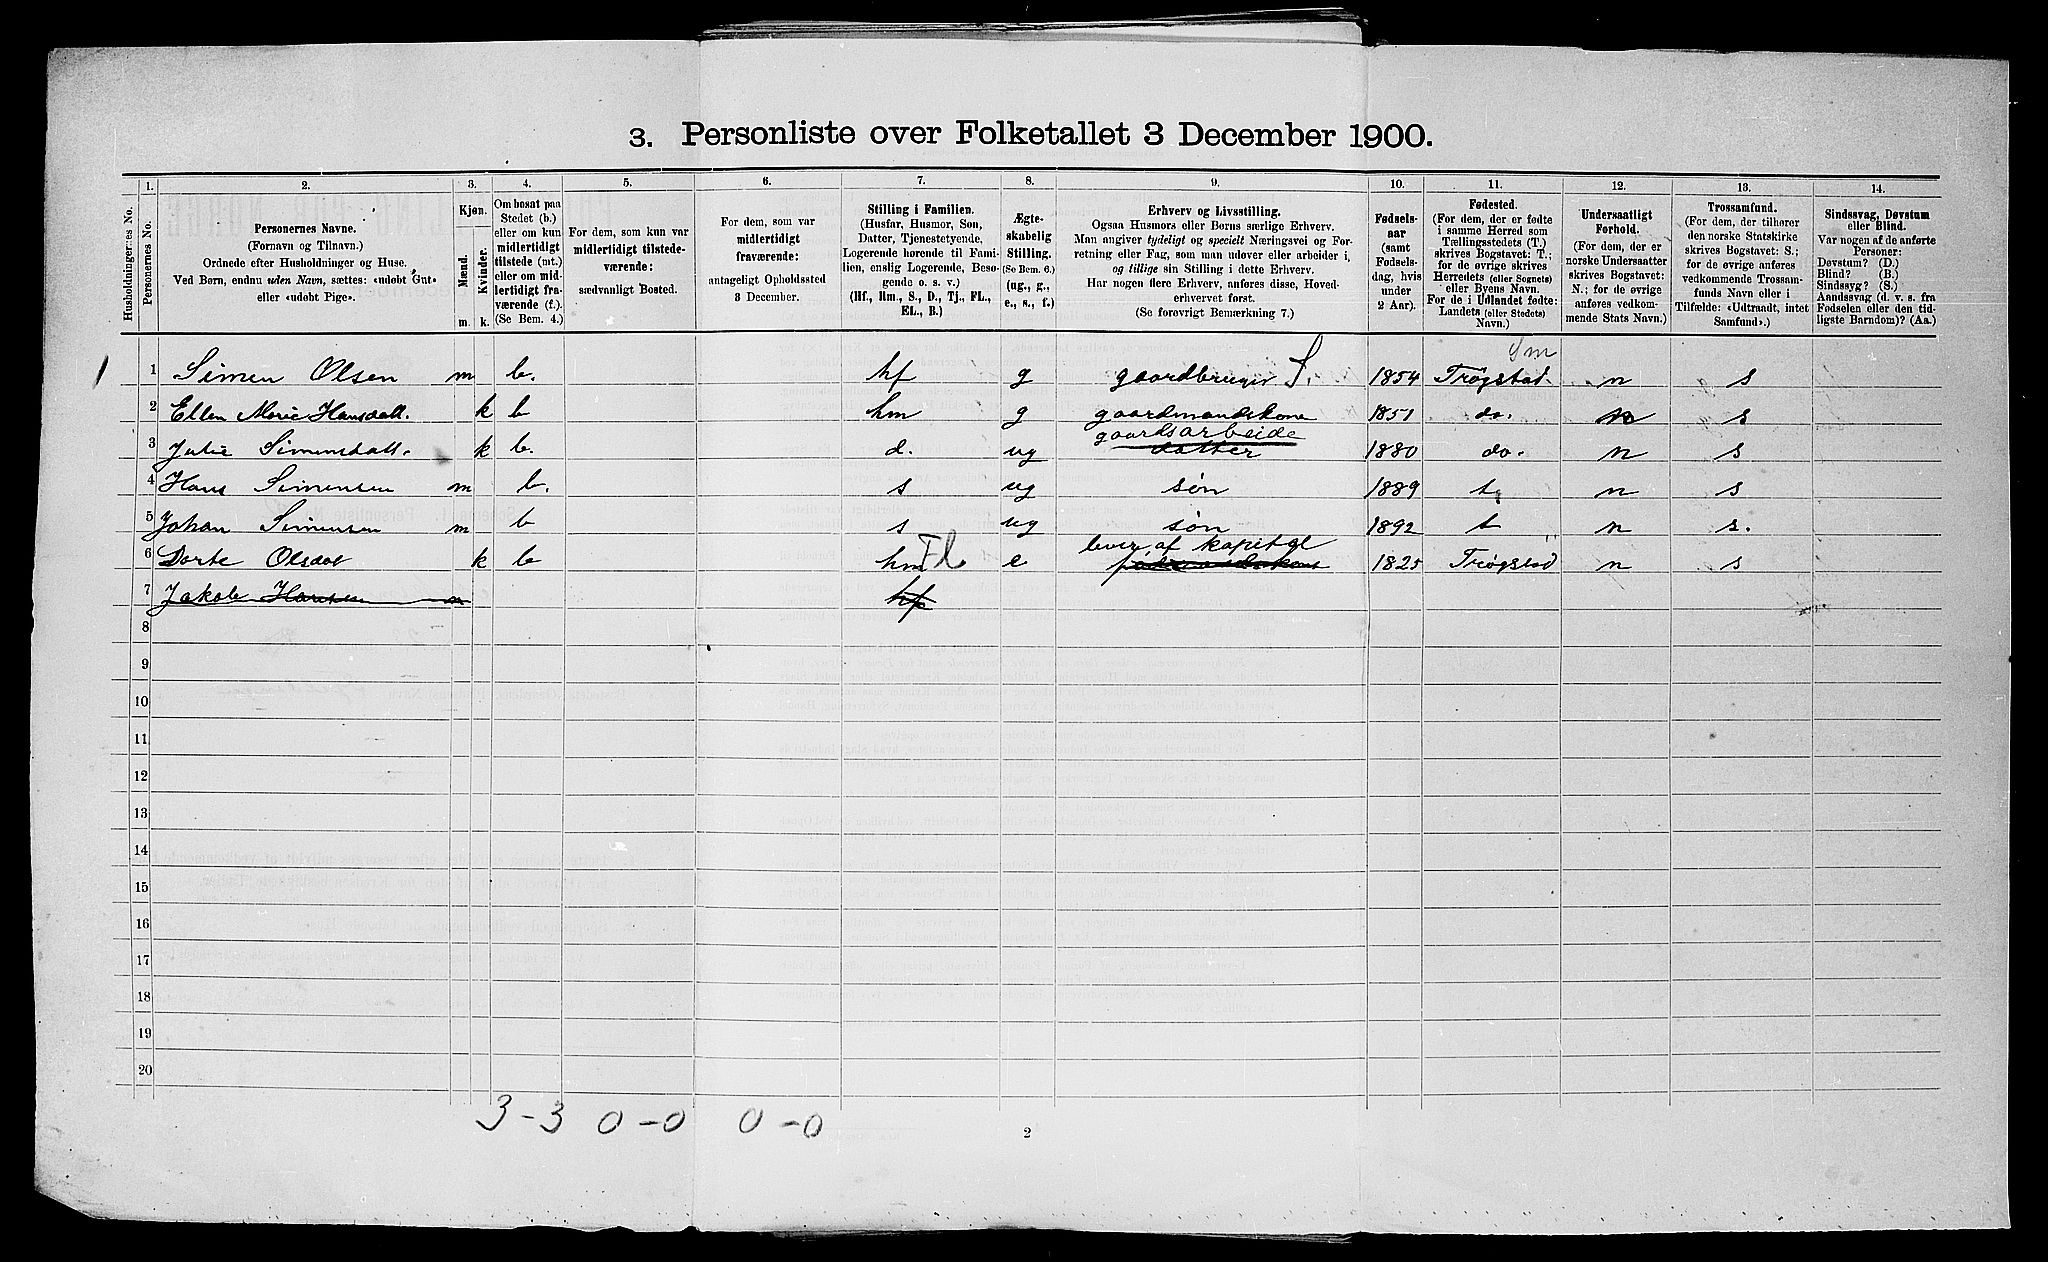 3. Personliste over Folketallet 3 December 1900.
Husholdningernes No.
1.
Personernes No.
2.
Personernes Navne.
(Fornavn og Tilnavn.)
Ordnede efter Husholdninger og Huse.
Ved Børn, endnu uden Navn, sættes: «udøbt Gut»
eller «udøbt Pige».
3.
Kjøn.
Mænd.
Kvinder.
m.
k.
4.
Om bosat paa
Stedet (b.)
eller om kun
midlertidigt
tilstede (mt.)
eller om mid-
lertidigt fra-
værende (f.).
(Se Bem. 4.)
5.
For dem, som kun var
midlertidigt tilstede-
værende:
sædvanligt Bosted.
6.
For dem, som var
midlertidigt
fraværende:
antageligt Opholdssted
3 December.
7.
Stilling i Familien.
(Husfar, Husmor, Søn,
Datter, Tjenestetyende,
Logerende hørende til Fami-
lien, enslig Logerende, Besø-
gende o. s. v.)
(Hf., Hm., S., D., Tj., FL.,
EL., B.)
8.
Ægte-
skabelig
Stilling.
(Se Bem. 6.)
(ug., g.,
e., s., f.)
9.
Erhverv og Livsstilling.
Ogsaa Husmors eller Børns særlige Erhverv.
Man angiver tydeligt og specielt Næringsvei og For-
retning eller Fag, som man udøver eller arbeider i,
og tillige sin Stilling i dette Erhverv.
Har nogen flere Erhverv, anføres disse, Hoved-
erhvervet først.
(Se forøvrigt Bemærkning 7.)
10.
Fødsels-
aar
(samt
Fødsels-
dag, hvis
under
2 Aar).
11.
Fødested.
(For dem, der er fødte
i samme Herred som
Tællingsstedets (T.)
skrives Bogstavet: T.;
for de øvrige skrives
Herredets (eller Sognets)
eller Byens Navn.
For de i Udlandet fødte:
Landets (eller Stedets)
Navn.)
12.
Undersaatligt
Forhold.
(For dem, der er
norske Undersaatter
skrives Bogstavet:
N.; for de øvrige
anføres vedkom-
mende Stats Navn.)
13.
Trossamfund.
(For dem, der tilhører
den norske Statskirke
skrives Bogstavet: S.;
for de øvrige anføres
vedkommende Trossam-
funds Navn eller i
Tilfælde: «Udtraadt, intet
Samfund».)
14.
Sindssvag, Døvstum
eller Blind.
Var nogen af de anførte
Personer:
Døvstum? (D.)
Blind? (B.)
Sindssyg? (S.)
Aandssvag (d. v. s. fra
Fødselen eller den tid-
ligste Barndom)? (Aa.)
Sm
1 1 Simen Olsen m b. hf g gaardbruger S. 1854 Trøgstad. n s
2 Ellen Marie Hansdatt. k b hm g gaardmandskone 1851 do. n s
gaardsarbeide
3 Julie Simensdatt. k b. d. ug datter 1880 do. n s
4 Hans Simensen m b. s ug søn 1889 t n s
5 Johan Simensen m b s ug søn 1892 t n s.
lever af kapital
6 Dorte Olsdat k b hm FL e 1825 Trøgstad n s
7 Jakob Hansen m hf
8
9
10
11
12
13
14
15
16
17
18
19
20
3 - 3 0 - 0 0 - 0
2